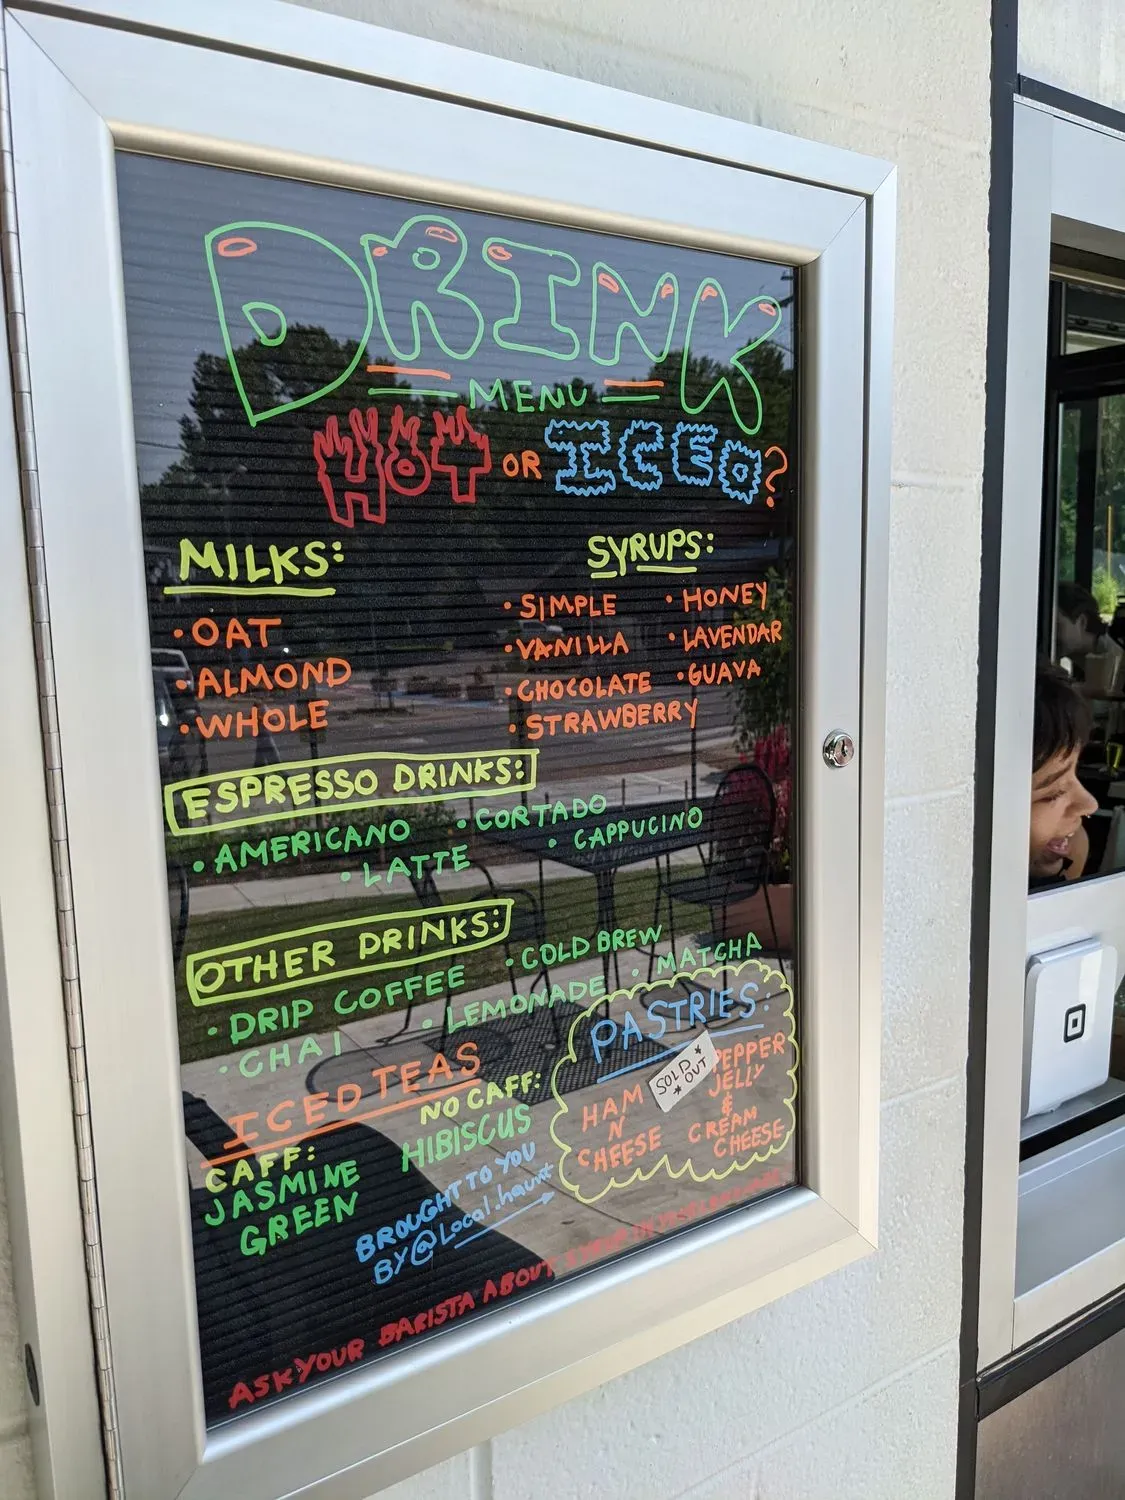 DRINK
MENU
HOT OR ICED?
MILKS:
• OAT
• ALMOND
• WHOLE
SYRUPS:
• SIMPLE
• VANILLA
• CHOCOLATE
• STRAWBERRY
• HONEY
• LAVENDAR
• GUAVA
ESPRESSO DRINKS:
• AMERICANO • CORTADO
• LATTE • CAPPUCINO
OTHER DRINKS:
• DRIP COFFEE • COLD BREW
• CHAI • LEMONADE • MATCHA
ICED TEAS
CAFF:
JASMINE
GREEN
NO CAFF:
HIBISCUS
PASTRIES:
HAM
N
CHEESE
* SOLD
OUT *
PEPPER
JELLY
&
CREAM
CHEESE
BROUGHT TO YOU
BY @Local.haunt
ASK YOUR BARISTA ABOUT